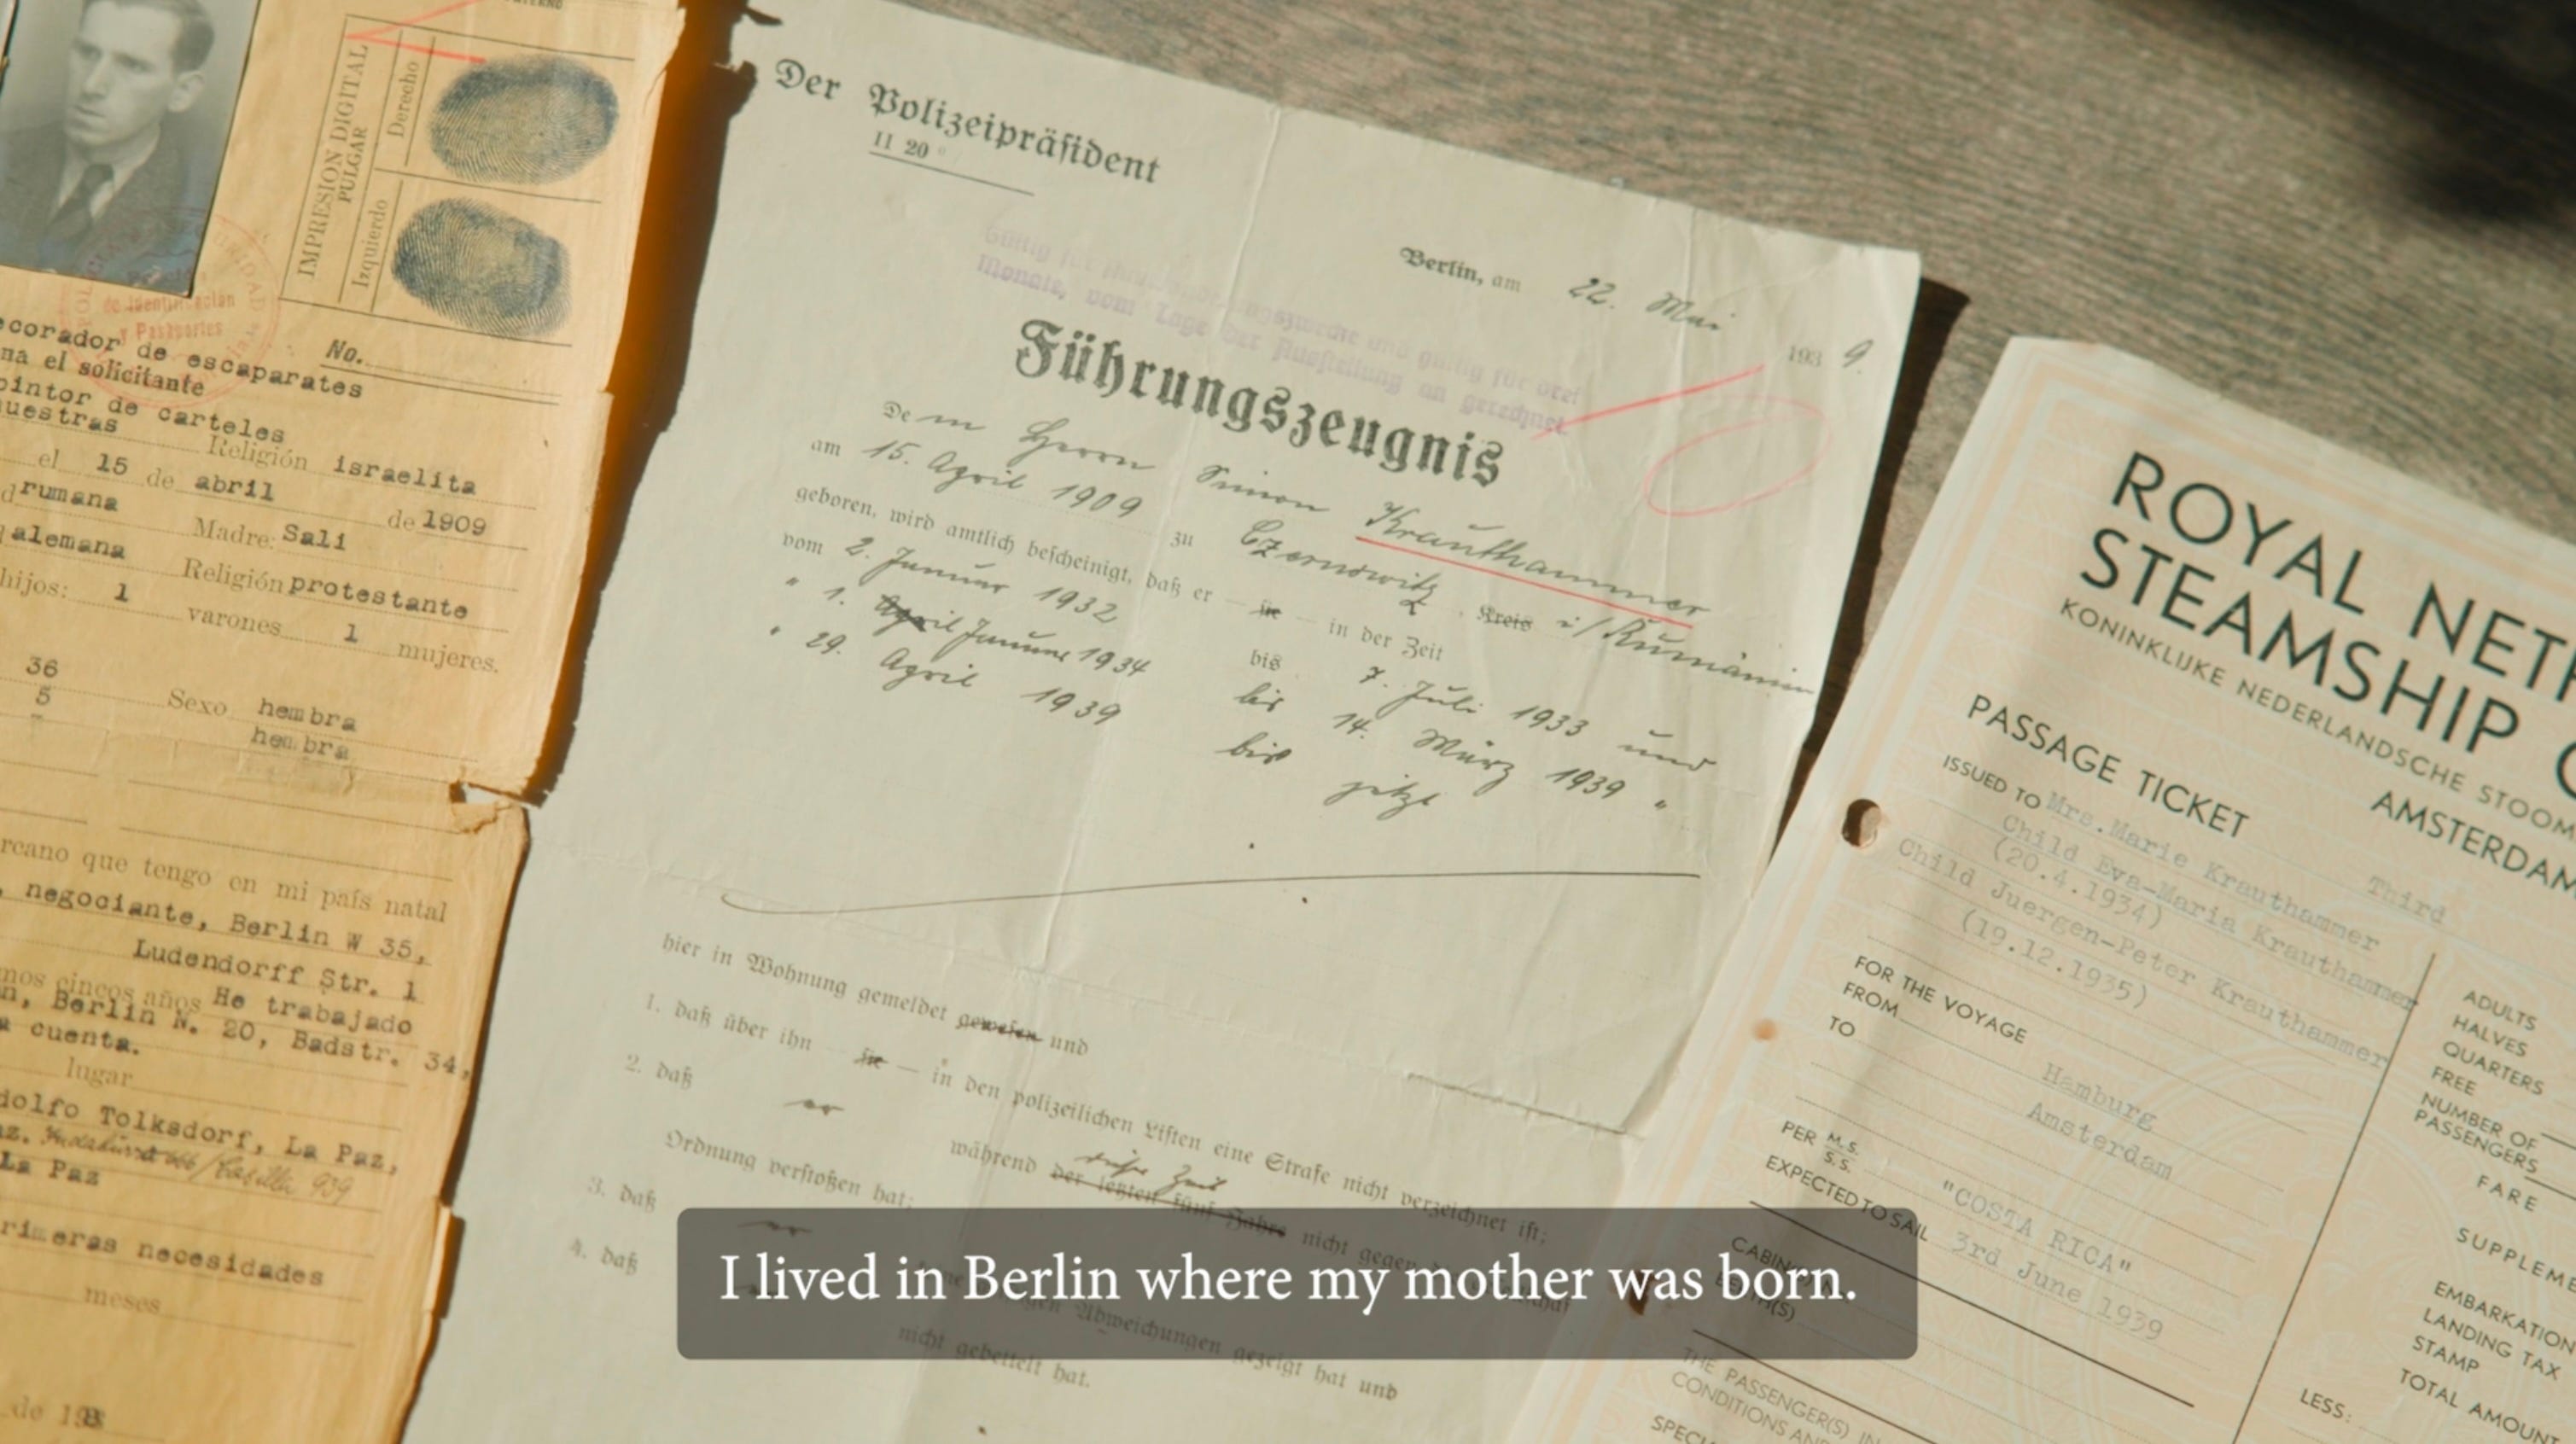 IMPRESION DIGITAL
PULGAR
Derecho
Izquierdo
de Identificación
y Pasaportes
No.
corador de escaparates
na el solicitante
pintor de carteles
uestras
Religión israelita
el 15 de abril de 1909
rumana Madre: Sali
alemana Religión protestante
hijos: 1 varones 1 mujeres.
36 Sexo hembra
5 hembra
rcano que tengo en mi país natal
, negociante, Berlin W 35,
Ludendorff Str. 1
mos cincos años He trabajado
n, Berlin N. 20, Badstr. 34,
a cuenta.
lugar
dolfo Tolksdorf, La Paz,
az. Casilla 939
La Paz
rimeras necesidades
meses
de 193
Der Polizeipräsident
II 20
Berlin, am 22. Mai 1939
Monate, vom Tage der Ausstellung an gerechnet.
Führungszeugnis
Dem Herrn Simon Krauthammer
am 15. April 1909 zu Czernowitz, Kreis i/Rumänien
geboren, wird amtlich bescheinigt, daß er — sie — in der Zeit
vom 2. Januar 1932 bis 7. Juli 1933 und
" 1. April Januar 1934 bis 14. März 1939 "
" 29. April 1939 bis jetzt
hier in Wohnung gemeldet gewesen und
1. daß über ihn — sie — in den polizeilichen Listen eine Strafe nicht verzeichnet ist;
2. daß er während der letzten fünf Jahre dieser Zeit nicht gegen
Ordnung verstoßen hat;
3. daß er
Abweichungen gezeigt hat und
4. daß
nicht gebettelt hat.
ROYAL NETH
STEAMSHIP C
KONINKLIJKE NEDERLANDSCHE STOOM
AMSTERDAM
PASSAGE TICKET
Third
ISSUED TO Mrs. Marie Krauthammer
Child Eva-Maria Krauthammer
(20.4.1934)
Child Juergen-Peter Krauthammer
(19.12.1935)
FOR THE VOYAGE
FROM Hamburg
TO Amsterdam
PER M.S. S.S. "COSTA RICA"
EXPECTED TO SAIL 3rd June 1939
CABIN
BERTH(S)
THE PASSENGER(S) IN
CONDITIONS AN
SPECI
ADULTS
HALVES
QUARTERS
FREE
NUMBER OF
PASSENGERS
FARE
SUPPLEME
EMBARKATION
LANDING TAX
STAMP
TOTAL AMOUNT
LESS:
I lived in Berlin where my mother was born.